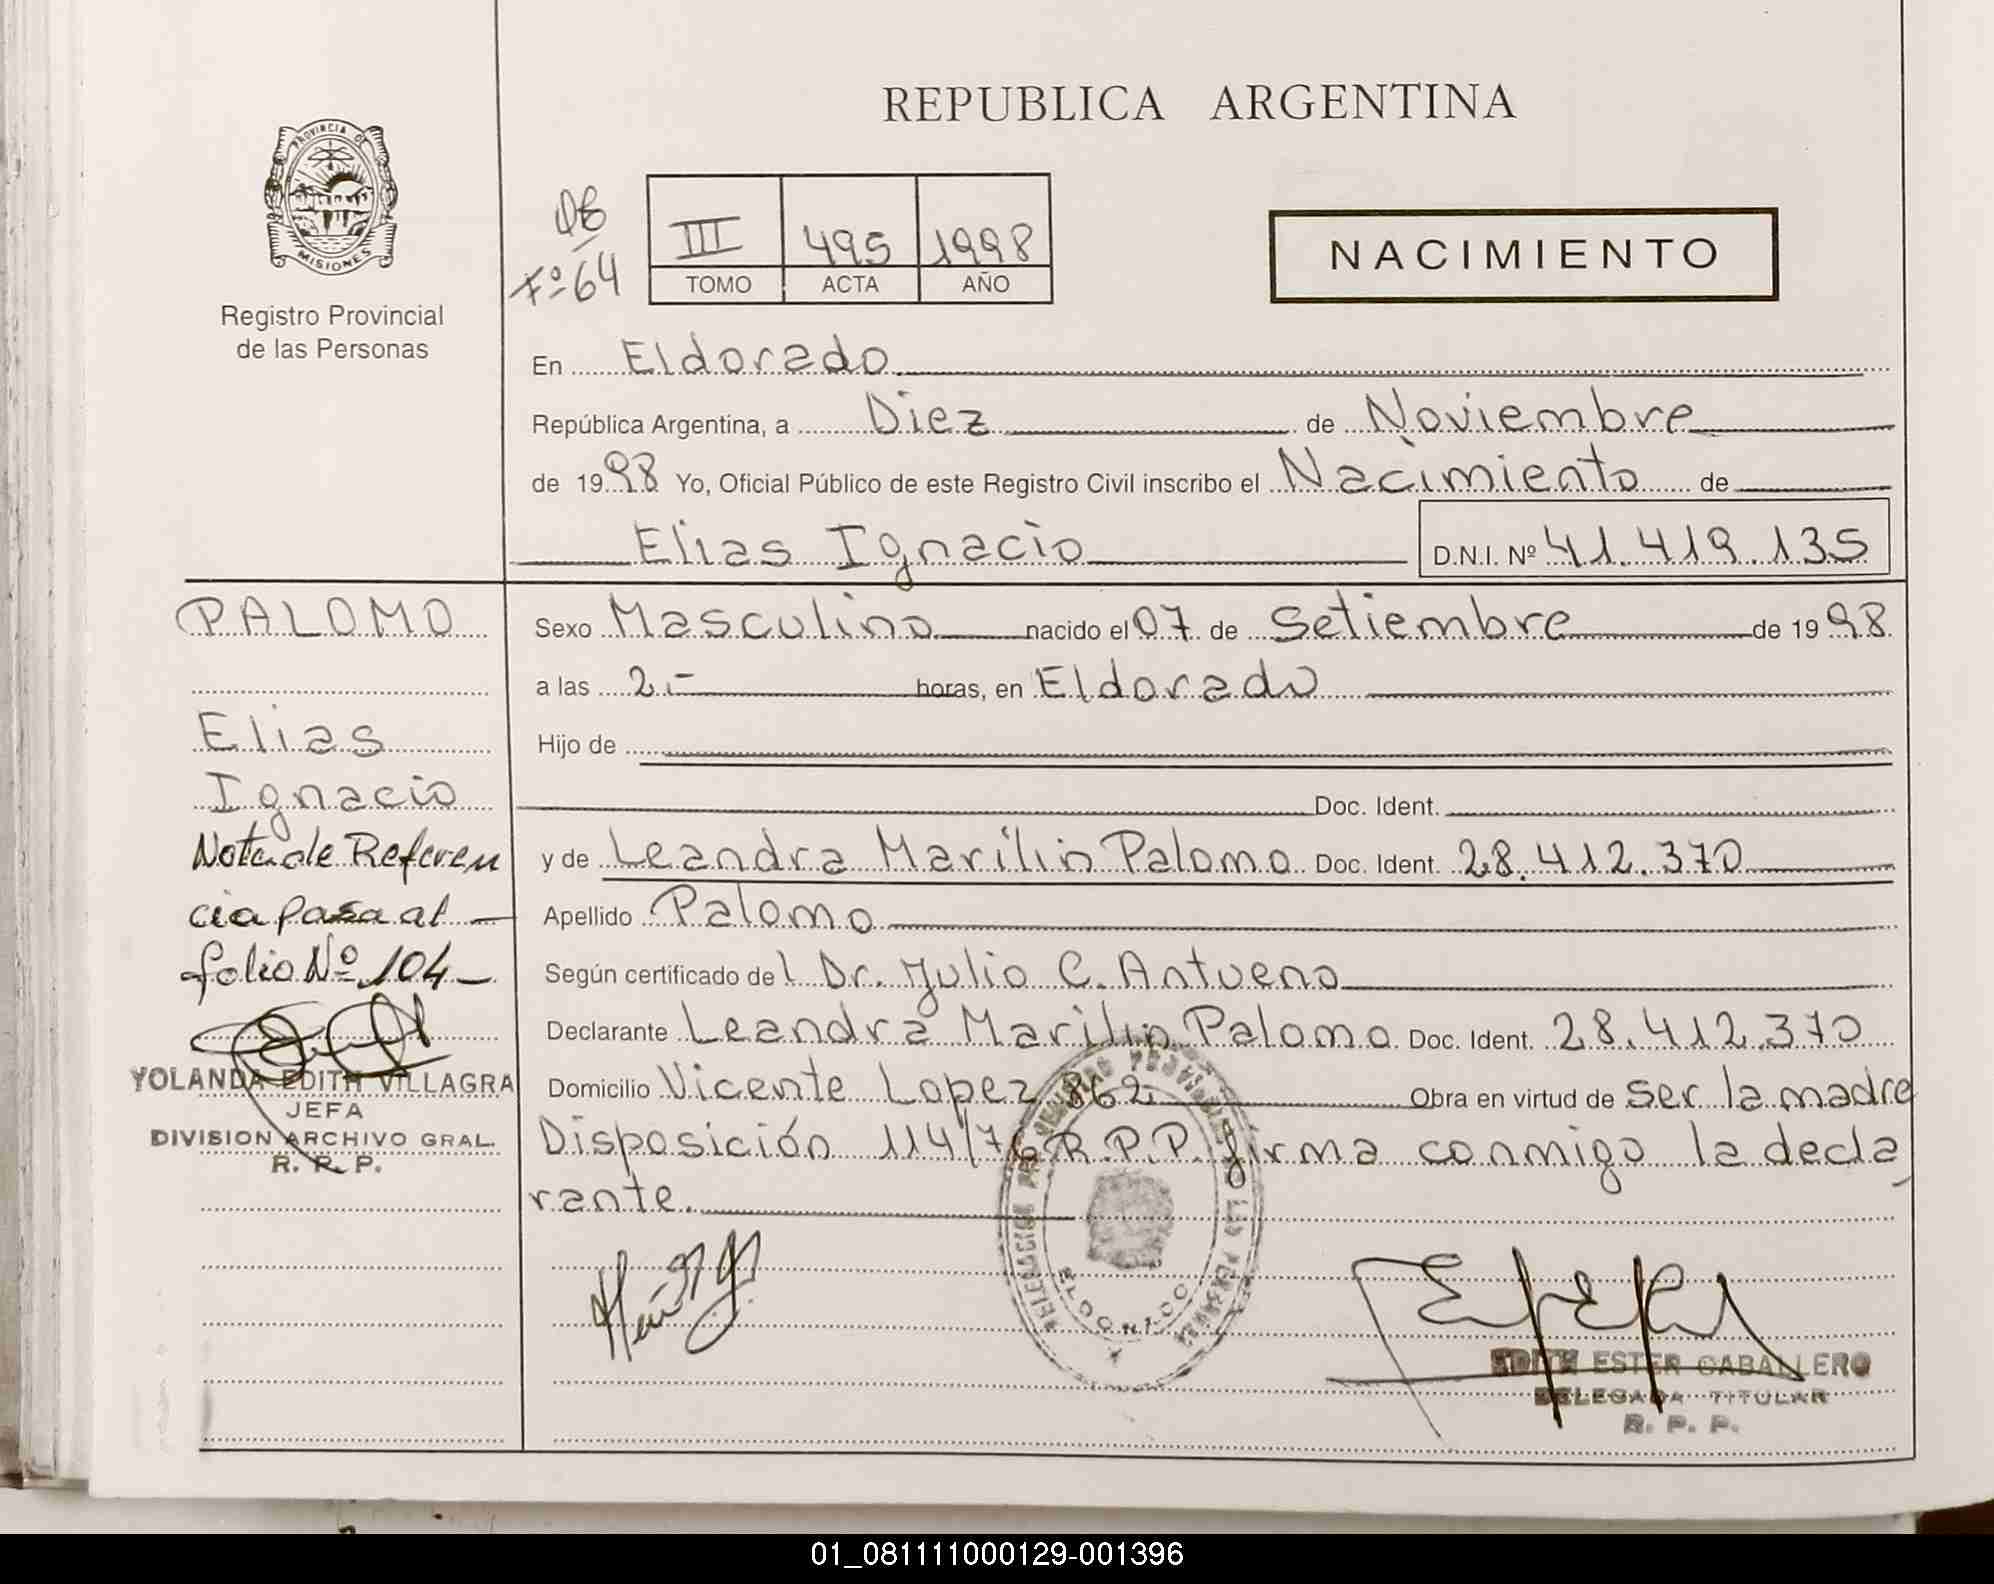 REPUBLICA ARGENTINA
PROVINCIA DE
MISIONES
Registro Provincial
de las Personas
Fº 64
III 495 1998
TOMO ACTA AÑO
NACIMIENTO
En Eldorado
República Argentina, a Diez de Noviembre
de 1998 Yo, Oficial Público de este Registro Civil inscribo el Nacimiento de
Elias Ignacio D.N.I. Nº 41.419.135
PALOMO
Elias
Ignacio
Nota de Referen
cia pasa al
folio Nº 104
YOLANDA EDITH VILLAGRA
JEFA
DIVISION ARCHIVO GRAL.
R. R. P.
Sexo Masculino nacido el 07 de Setiembre de 1998
a las 2.- horas, en Eldorado
Hijo de
Doc. Ident.
y de Leandra Marilin Palomo Doc. Ident. 28.412.370
Apellido Palomo
Según certificado del Dr. Julio C. Antueno
Declarante Leandra Marilin Palomo Doc. Ident. 28.412.370
Domicilio Vicente Lopez 862 Obra en virtud de ser la madre
Disposición 114/76 R.P.P. firma conmigo la decla
rante.
EDITH ESTER CABALLERO
DELEGADA TITULAR
R. P. P.
01_081111000129-001396